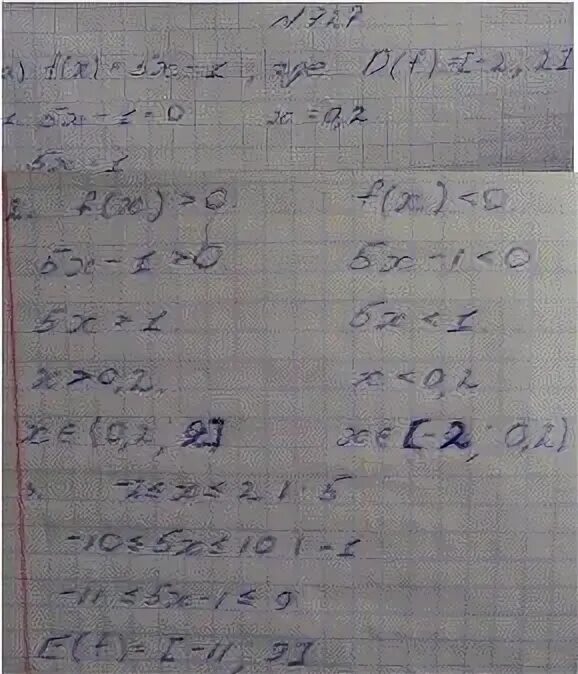 №727
а) f(x) = 5x - 1, где D(f) = [-2, 2]
1. 5x - 1 = 0 x = 0,2
5x = 1
2. f(x) > 0 f(x) < 0
5x - 1 > 0 5x - 1 < 0
5x > 1 5x < 1
x > 0,2. x < 0,2
x ∈ (0,2; 2] x ∈ [-2; 0,2)
3. -2 ≤ x ≤ 2 | · 5
-10 ≤ 5x ≤ 10 | -1
-11 ≤ 5x - 1 ≤ 9
E(f) = [-11, 9]